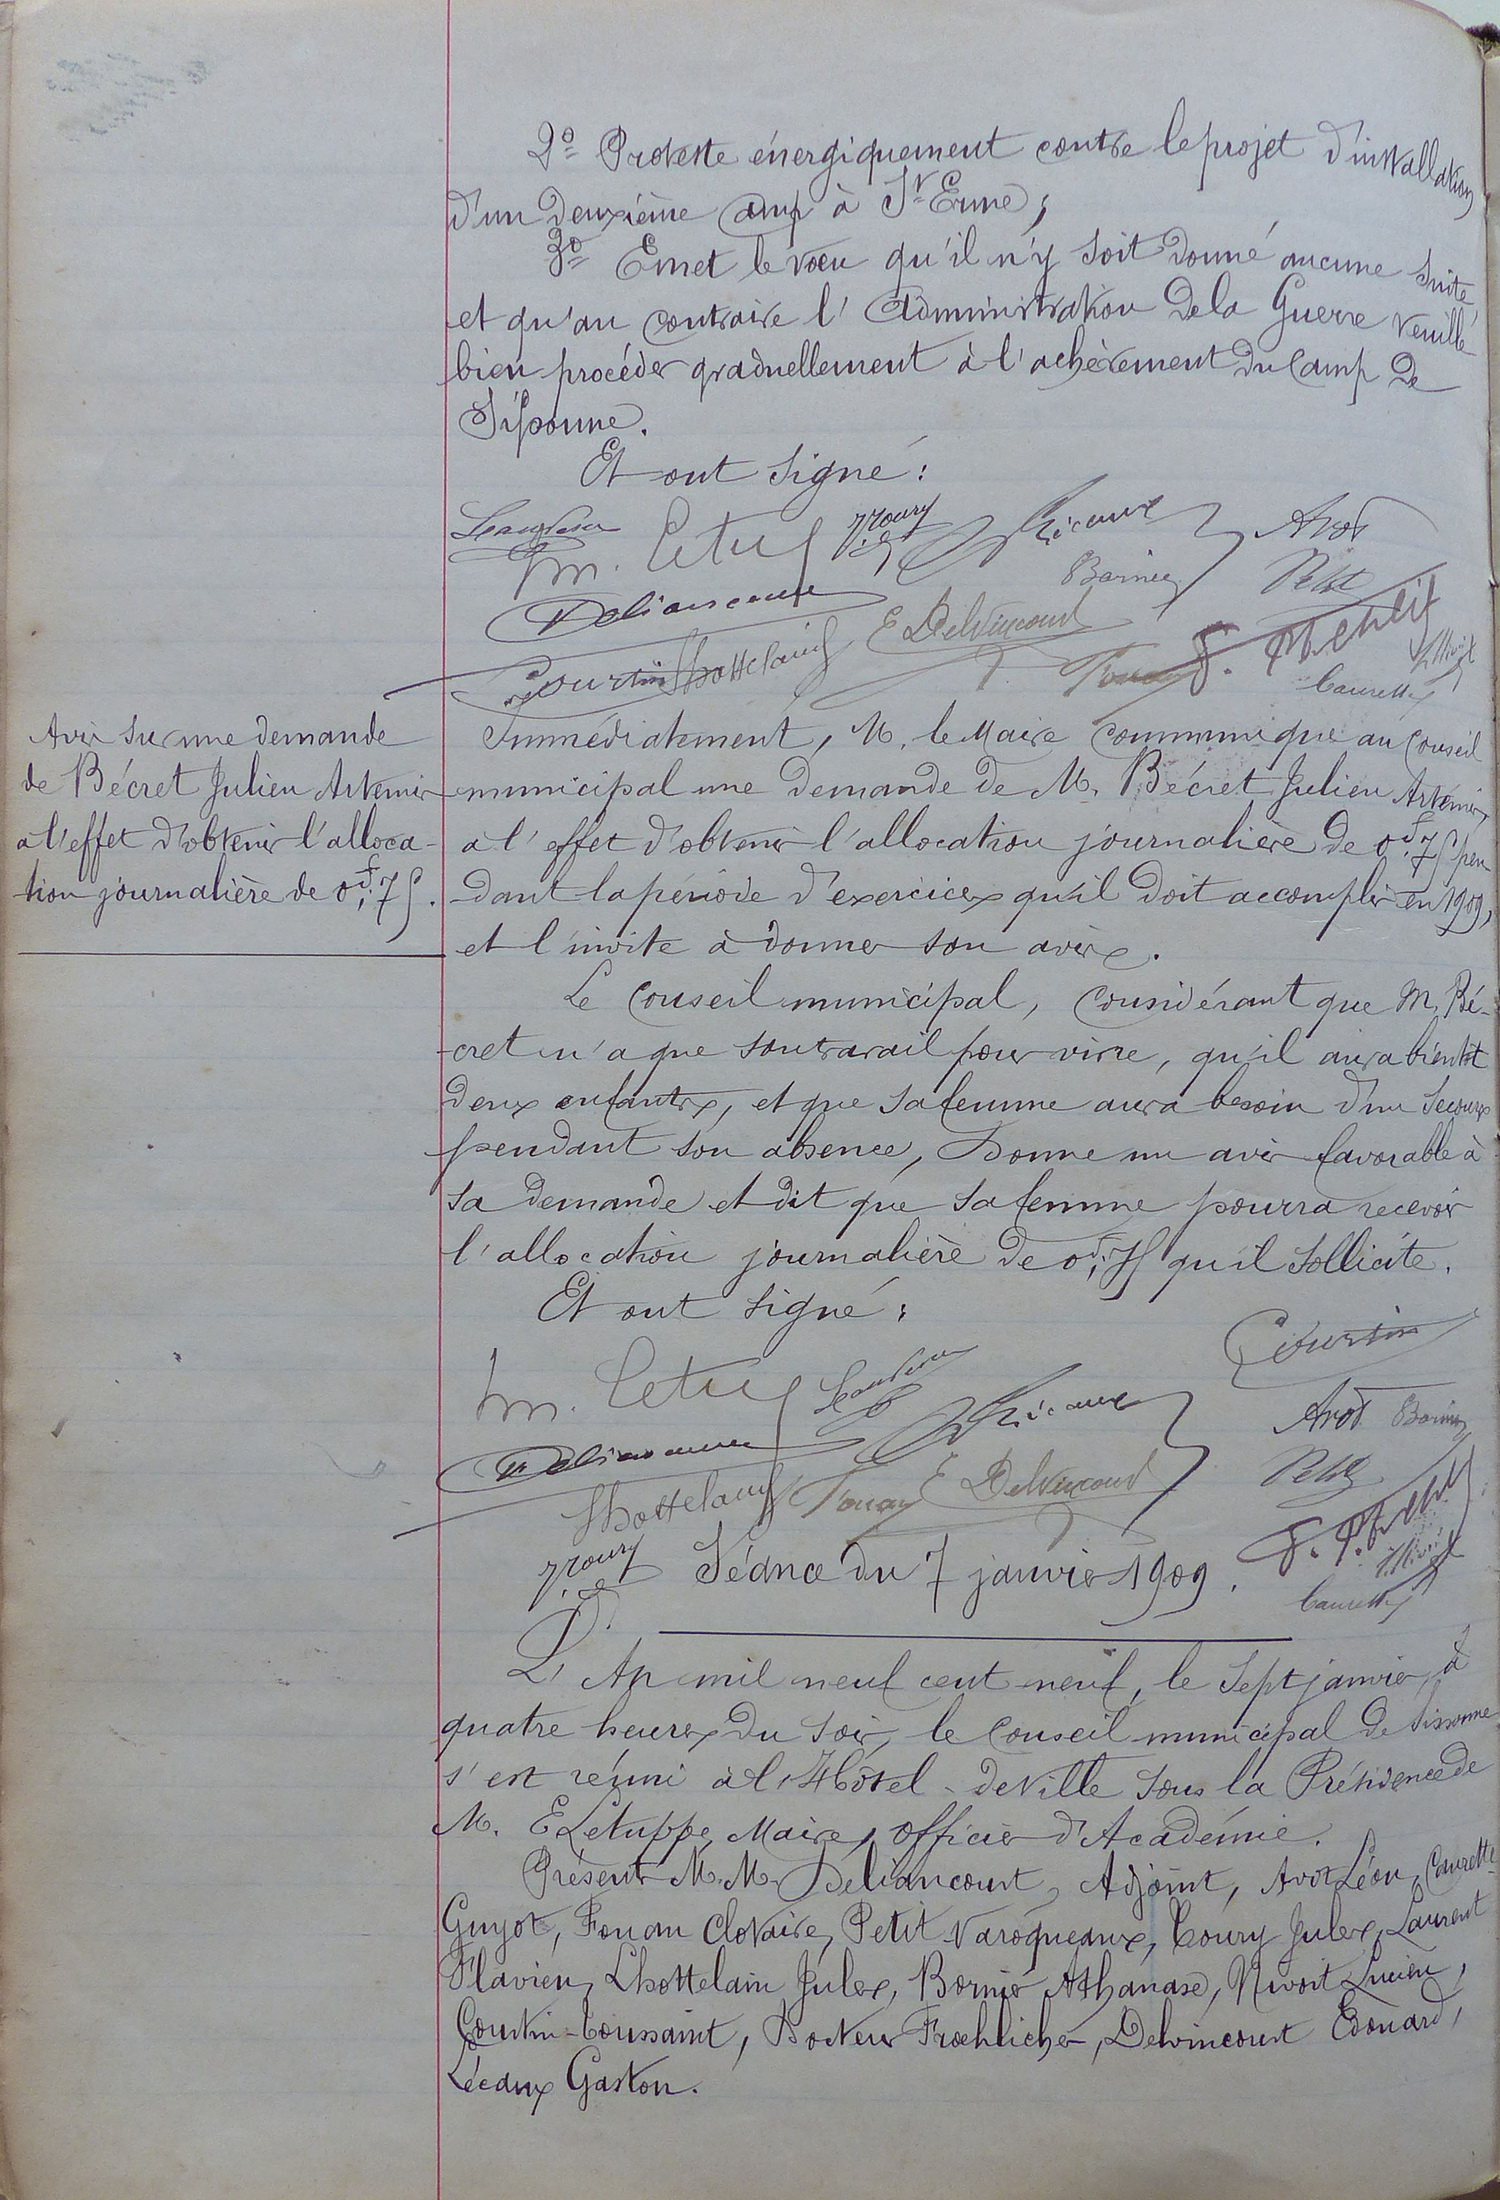 2º Proteste énergiquement contre le projet d'installation
d'un deuxième camp à St Erme;
3º Emet le vœu qu'il n'y soit donné aucune suite
et qu'au contraire l'Administration de la Guerre veuille
bien procéder graduellement à l'achèvement du Camp de
Sissonne.
Et ont signé:
m. Letup
Toury
Avot
Bornier
Petit
Deliancourt
E Delvincourt
Courtin Lhottelain
Fouan
Caurette
Avis sur une demande
de Bécret Julien Artémis
a l'effet d'obtenir l'alloca-
tion journalière de 0f,75.
Immédiatement, M. le Maire communique au Conseil
municipal une demande de M. Bécret Julien Artémis,
a l'effet d'obtenir l'allocation journalière de 0f,75 pen-
dant la période d'exercices qu'il doit accomplir en 1909,
et l'invite à donner son avis.
Le Conseil municipal, Considérant que M. Bé-
cret n'a que son travail pour vivre, qu'il aura bientôt
deux enfants, et que sa femme aura besoin d'un secours
pendant son absence, Donne un avis favorable à
sa demande et dit que sa femme pourra recevoir
l'allocation journalière de 0f,75 qu'il sollicite.
Et ont signé:
Courtin
m. Letup
Avot Bornier
Deliancourt
Petit
Lhottelain Fouan E Delvincourt
Toury
Caurette
Séance du 7 janvier 1909.
L'An mil neuf cent neuf, le sept janvier, à
quatre heures du soir, le Conseil municipal de Sissonne
s'est réuni à l'Hôtel-de Ville sous la Présidence de
M. E Letuppe, Maire, officier d'Académie.
Présents M.M. Deliancourt, Adjoint, Avot Léon, Caurette-
Guyot, Fouan Clotaire, Petit Varoqueaux, Toury Jules, Laurent
Flavien, Lhottelain Jules, Bornier Athanase, Nivoit Lucien,
Courtin-Toussaint, Docteur Froehlicher, Delvincourt Edouard,
Lécaux Gaston.